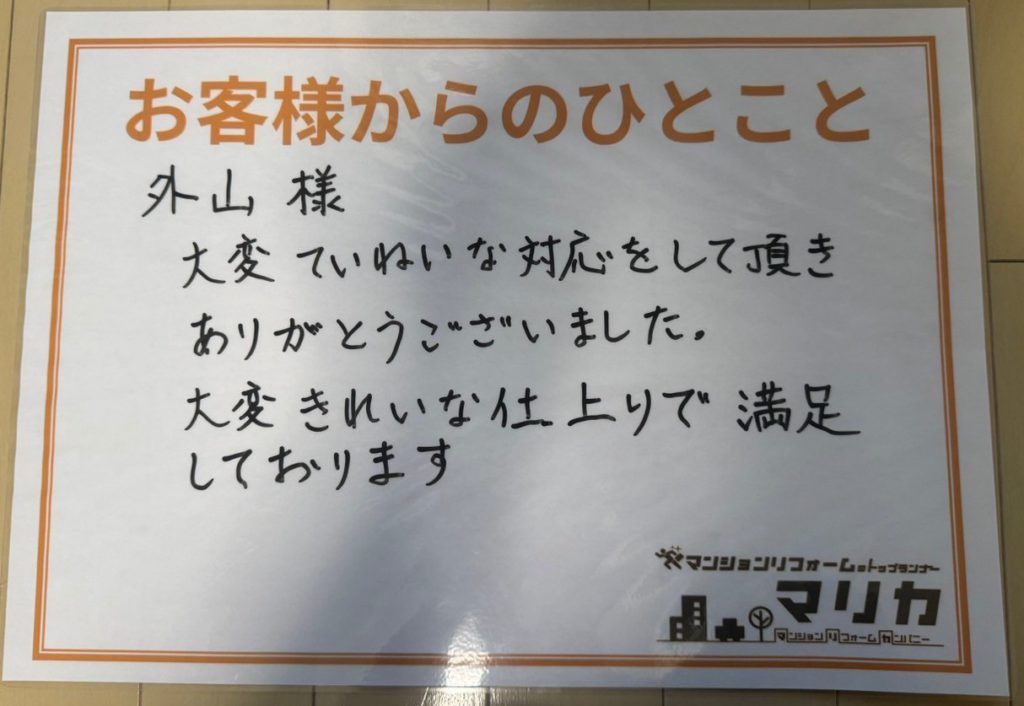 お客様からのひとこと
外山 様
大変 ていねいな対応をして頂き
ありがとうございました。
大変 きれいな仕上りで 満足
しております
マンションリフォームのトップランナー
マリカ
マンションリフォームカンパニー